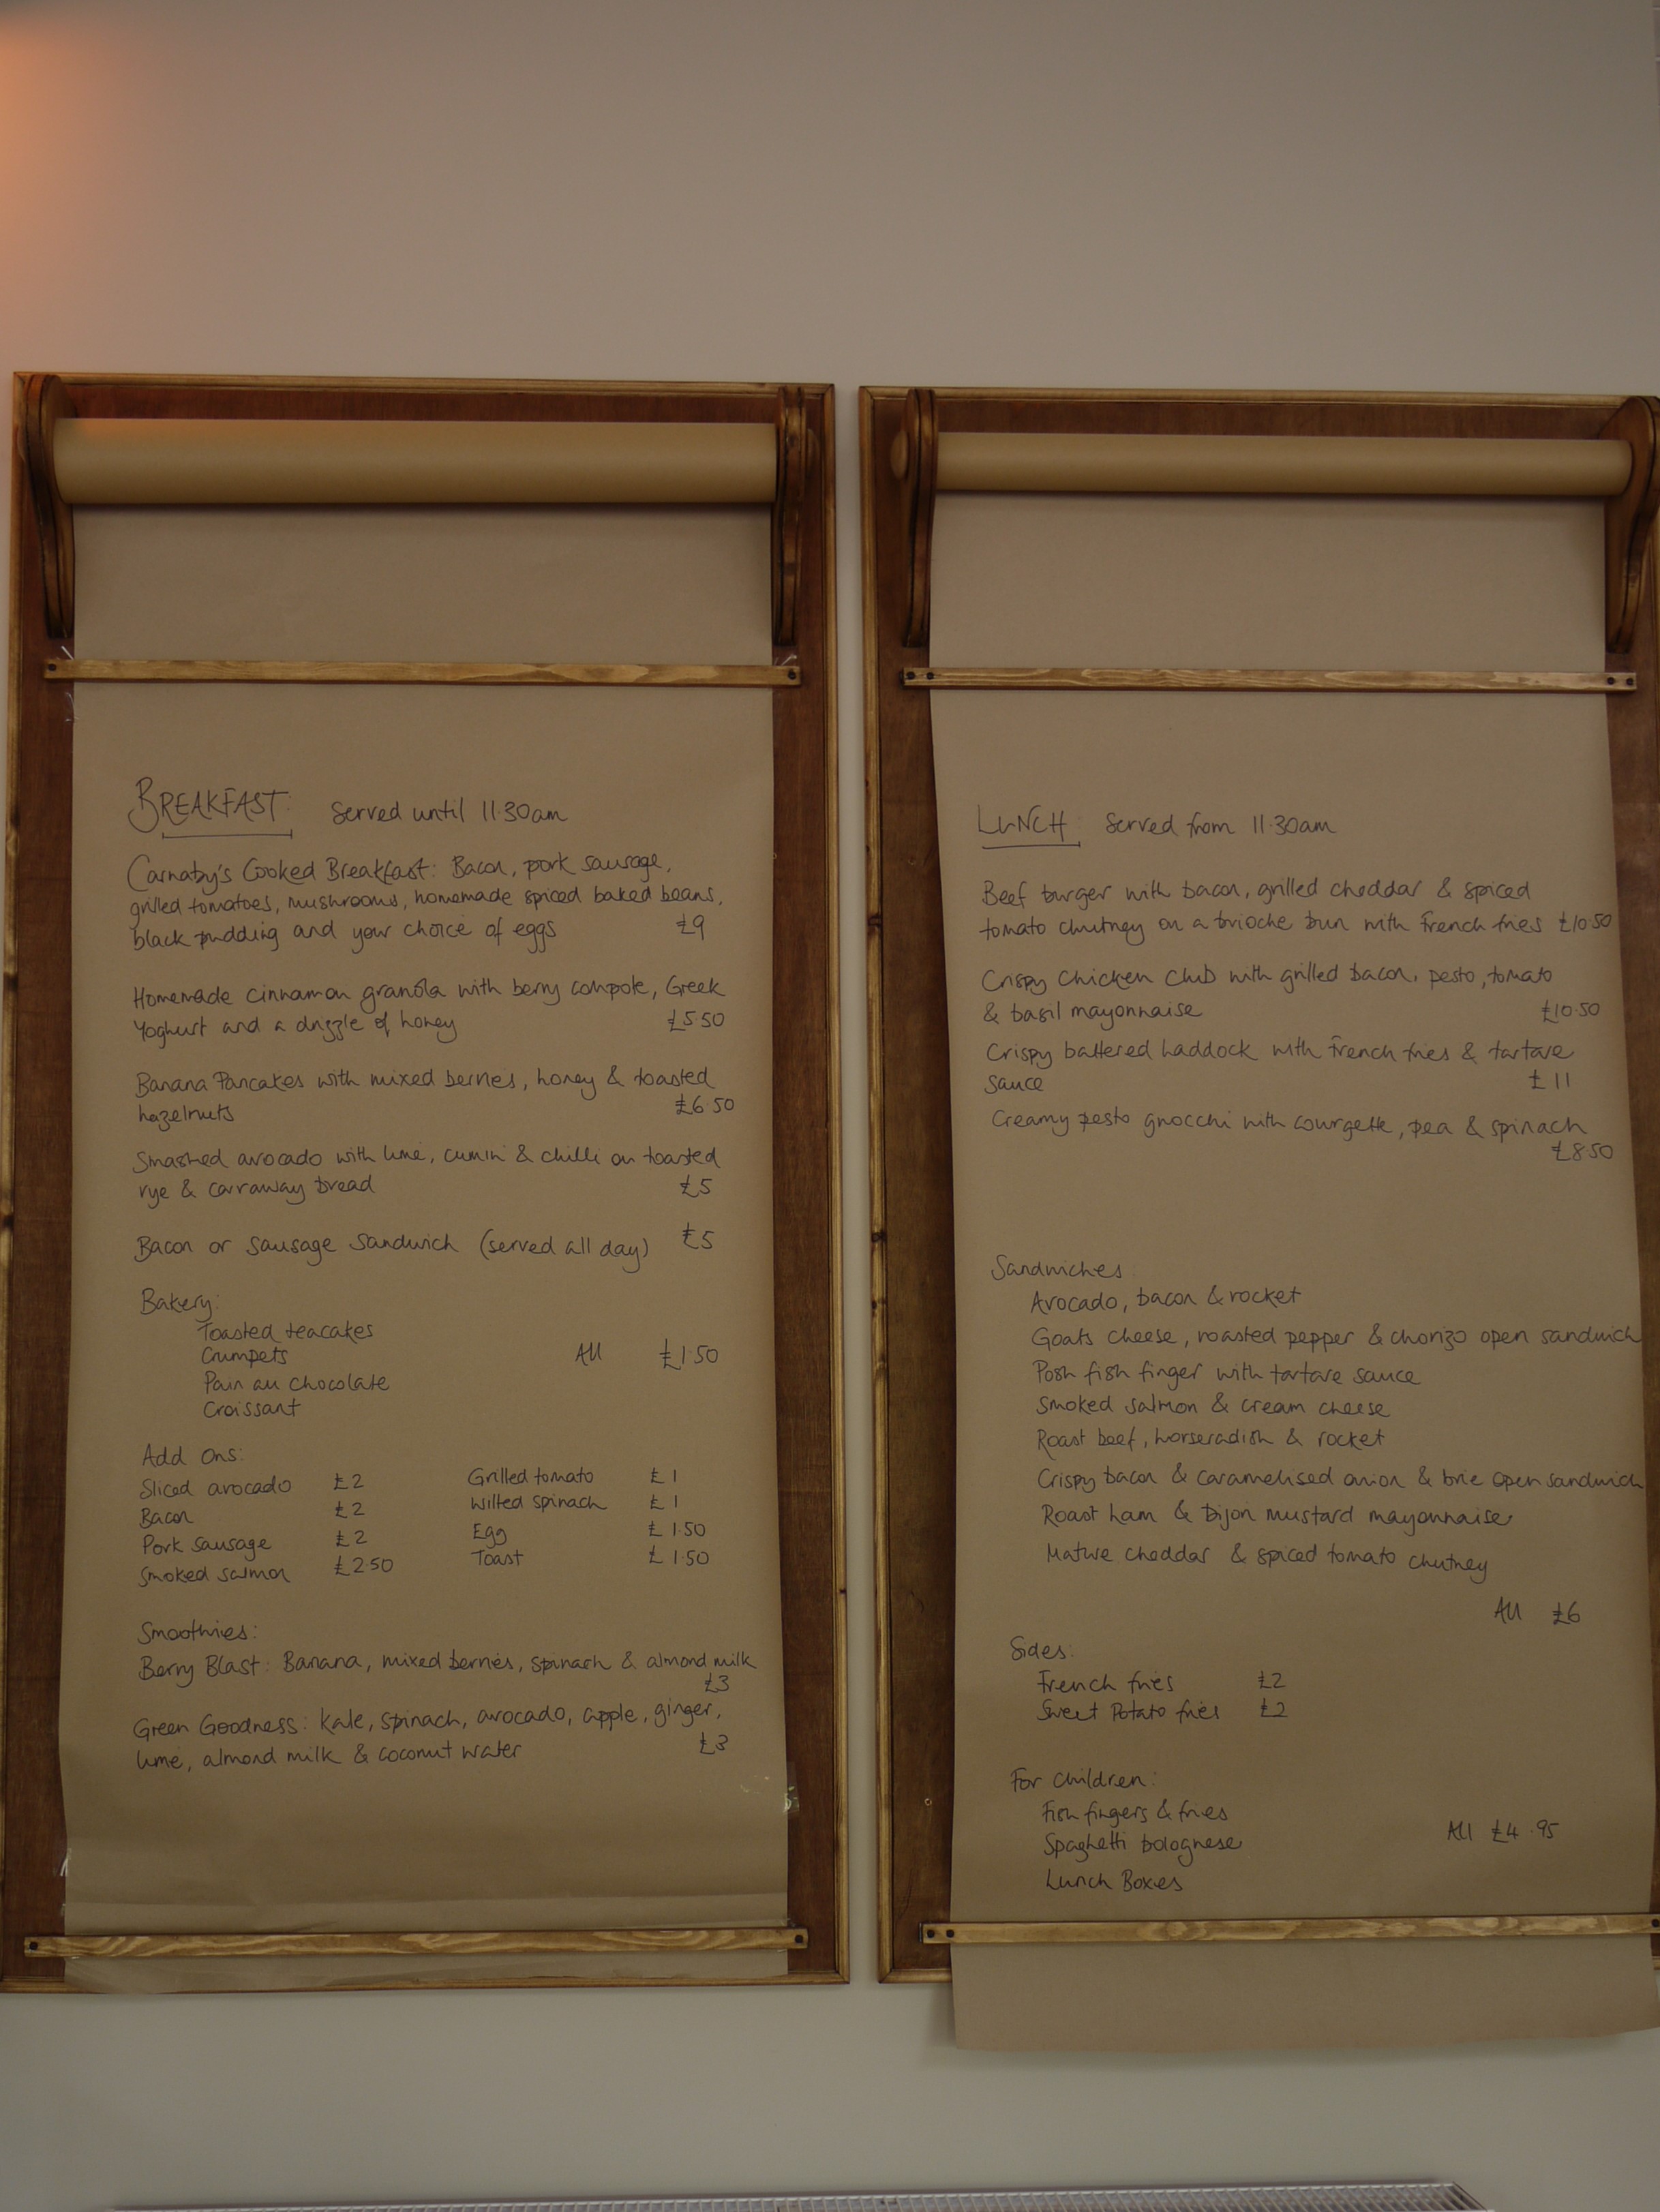 BREAKFAST: Served until 11.30am
Carnaby's Cooked Breakfast: Bacon, pork sausage,
grilled tomatoes, mushrooms, homemade spiced baked beans,
black pudding and your choice of eggs £9
Homemade cinnamon granola with berry compote, Greek
Yoghurt and a drizzle of honey £5.50
Banana Pancakes with mixed berries, honey & toasted
hazelnuts £6.50
Smashed avocado with lime, cumin & chilli on toasted
rye & carraway bread £5
Bacon or Sausage Sandwich (served all day) £5
Bakery:
Toasted teacakes
Crumpets All £1.50
Pain au chocolate
Croissant
Add Ons:
Sliced avocado £2 Grilled tomato £1
Bacon £2 Wilted spinach £1
Pork sausage £2 Egg £1.50
Smoked salmon £2.50 Toast £1.50
Smoothies:
Berry Blast: Banana, mixed berries, spinach & almond milk
£3
Green Goodness: kale, spinach, avocado, apple, ginger,
lime, almond milk & coconut water £3
LUNCH: Served from 11.30am
Beef burger with bacon, grilled cheddar & spiced
tomato chutney on a brioche bun with french fries £10.50
Crispy Chicken Club with grilled bacon, pesto, tomato
& basil mayonnaise £10.50
Crispy battered haddock with french fries & tartare
sauce £11
Creamy pesto gnocchi with courgette, pea & spinach
£8.50
Sandwiches:
Avocado, bacon & rocket
Goats cheese, roasted pepper & chorizo open sandwich
Posh fish finger with tartare sauce
Smoked salmon & cream cheese
Roast beef, horseradish & rocket
Crispy bacon & caramelised onion & brie open sandwich
Roast ham & Dijon mustard mayonnaise
Mature cheddar & spiced tomato chutney
All £6
Sides:
French fries £2
Sweet Potato fries £2
For Children:
Fish fingers & fries
Spaghetti bolognese All £4.95
Lunch Boxes